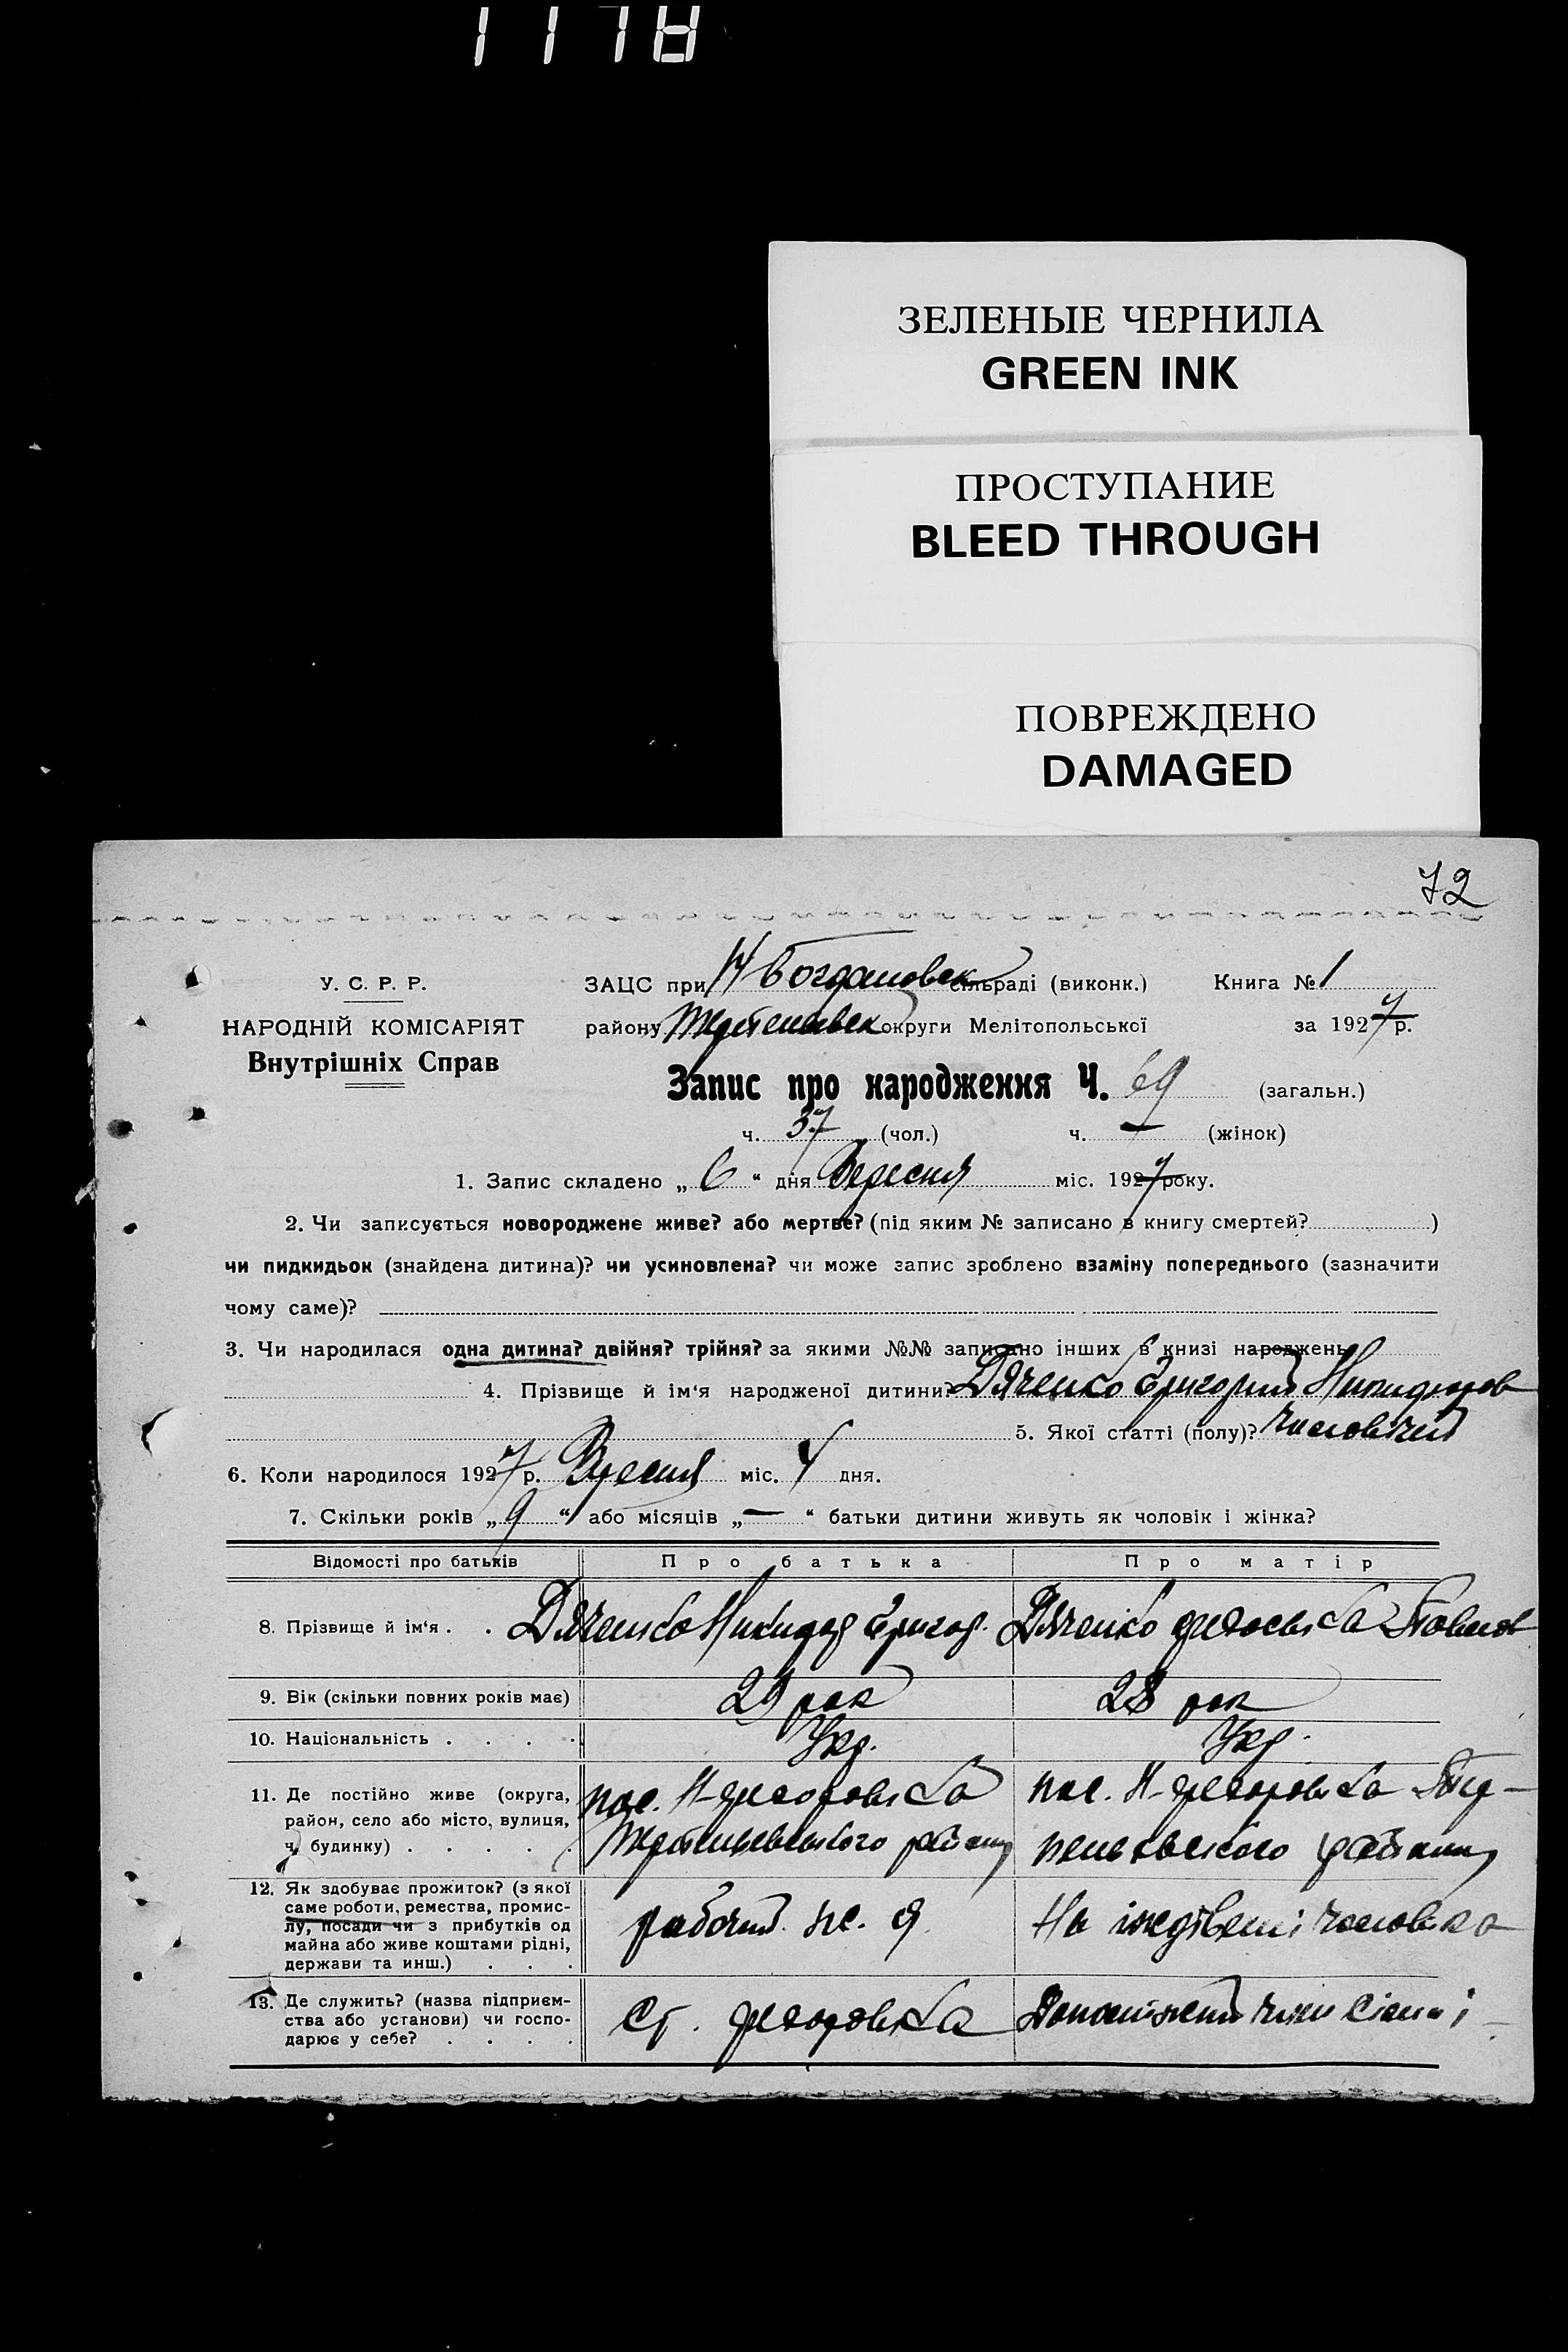 1178
ЗЕЛЕНЫЕ ЧЕРНИЛА
GREEN INK
ПРОСТУПАНИЕ
BLEED THROUGH
ПОВРЕЖДЕНО
DAMAGED
72
У. С. Р. Р.
НАРОДНІЙ КОМІСАРІЯТ
Внутрішніх Справ
ЗАЦС при Н Богдановск сільраді (виконк.) Книга № 1
району округи Мелітопольської за 1927 р.
Запис про народження Ч. 69 (загальн.)
ч. 37 (чол.) ч. — (жінок)
1. Запис складено „ 6 “ дня Вересня міс. 1927 року.
2. Чи записується новороджене живе? або мертве? (під яким № записано в книгу смертей? )
чи пидкидьок (знайдена дитина)? чи усиновлена? чи може запис зроблено взаміну попереднього (зазначити
чому саме)?
3. Чи народилася одна дитина? двійня? трійня? за якими №№ записано інших в книзі народжень
4. Прізвище й ім‘я народженої дитини? Дяченко Григорий Никифоров
5. Якої статті (полу)? чоловічий
6. Коли народилося 1927 р. Вересня міс. 4 дня.
7. Скільки років „ 9 “ або місяців „ — “ батьки дитини живуть як чоловік і жінка?
Відомості про батьків Про батька Про матір
8. Прізвище й ім‘я . . Дяченко Никифор Григор. Дяченко Павлов
9. Вік (скільки повних років має) 29 рок 28 рок
10. Національність . . . . Укр. Укр.
11. Де постійно живе (округа,
район, село або місто, вулиця,
ч. будинку) . . . . .
пос. Н-Федоровка
району
пос. Н-Федоровка
району
12. Як здобуває прожиток? (з якої
саме роботи, ремества, промис-
лу, посади чи з прибутків од
майна або живе коштами рідні,
держави та инш.) . . .
рабочий
На чоловіка
13. Де служить? (назва підприєм-
ства або установи) чи госпо-
дарює у себе? . . . .
Ст. Федоровка
член сімні